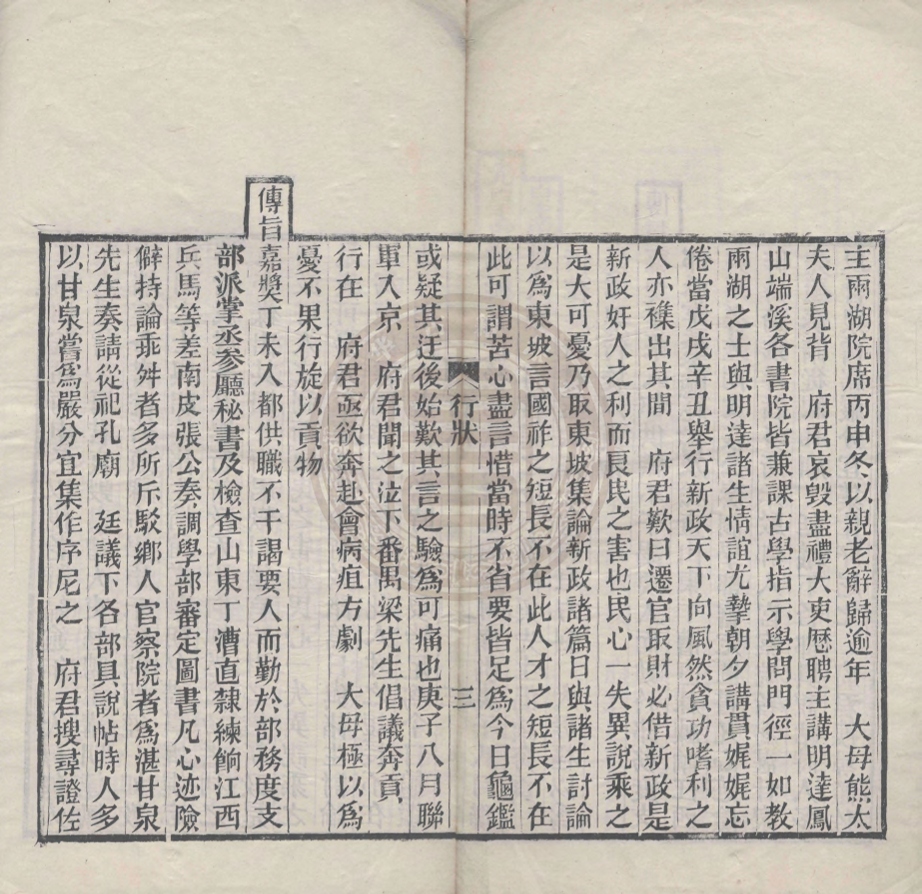 主兩湖院席丙申冬以親老辭歸逾年　大母熊太
夫人見背　府君哀毀盡禮大吏歷聘主講明達鳳
山端溪各書院皆兼課古學指示學問門徑一如教
兩湖之士與明達諸生情誼尤摯朝夕講貫娓娓忘
倦當戊戌辛丑舉行新政天下向風然貪功嗜利之
人亦襍出其間　府君歎曰遷官取財必借新政是
新政奸人之利而良民之害也民心一失異說乘之
是大可憂乃取東坡集論新政諸篇日與諸生討論
以為東坡言國祚之短長不在此人才之短長不在
此可謂苦心盡言惜當時不省要皆足為今日龜鑑
行狀　三
或疑其迂後始歎其言之驗為可痛也庚子八月聯
軍入京　府君聞之泣下番禺梁先生倡議奔貢
行在　府君亟欲奔赴會病疽方劇　大母極以為
憂不果行旋以貢物
傳旨嘉獎丁未入都供職不干謁要人而勤於部務度支
部派掌丞參廳秘書及檢查山東丁漕直隸練餉江西
兵馬等差南皮張公奏調學部審定圖書凡心迹險
僻持論乖舛者多所斥駁鄉人官察院者為湛甘泉
先生奏請從祀孔廟　廷議下各部具說帖時人多
以甘泉嘗為嚴分宜集作序尼之　府君搜尋證佐